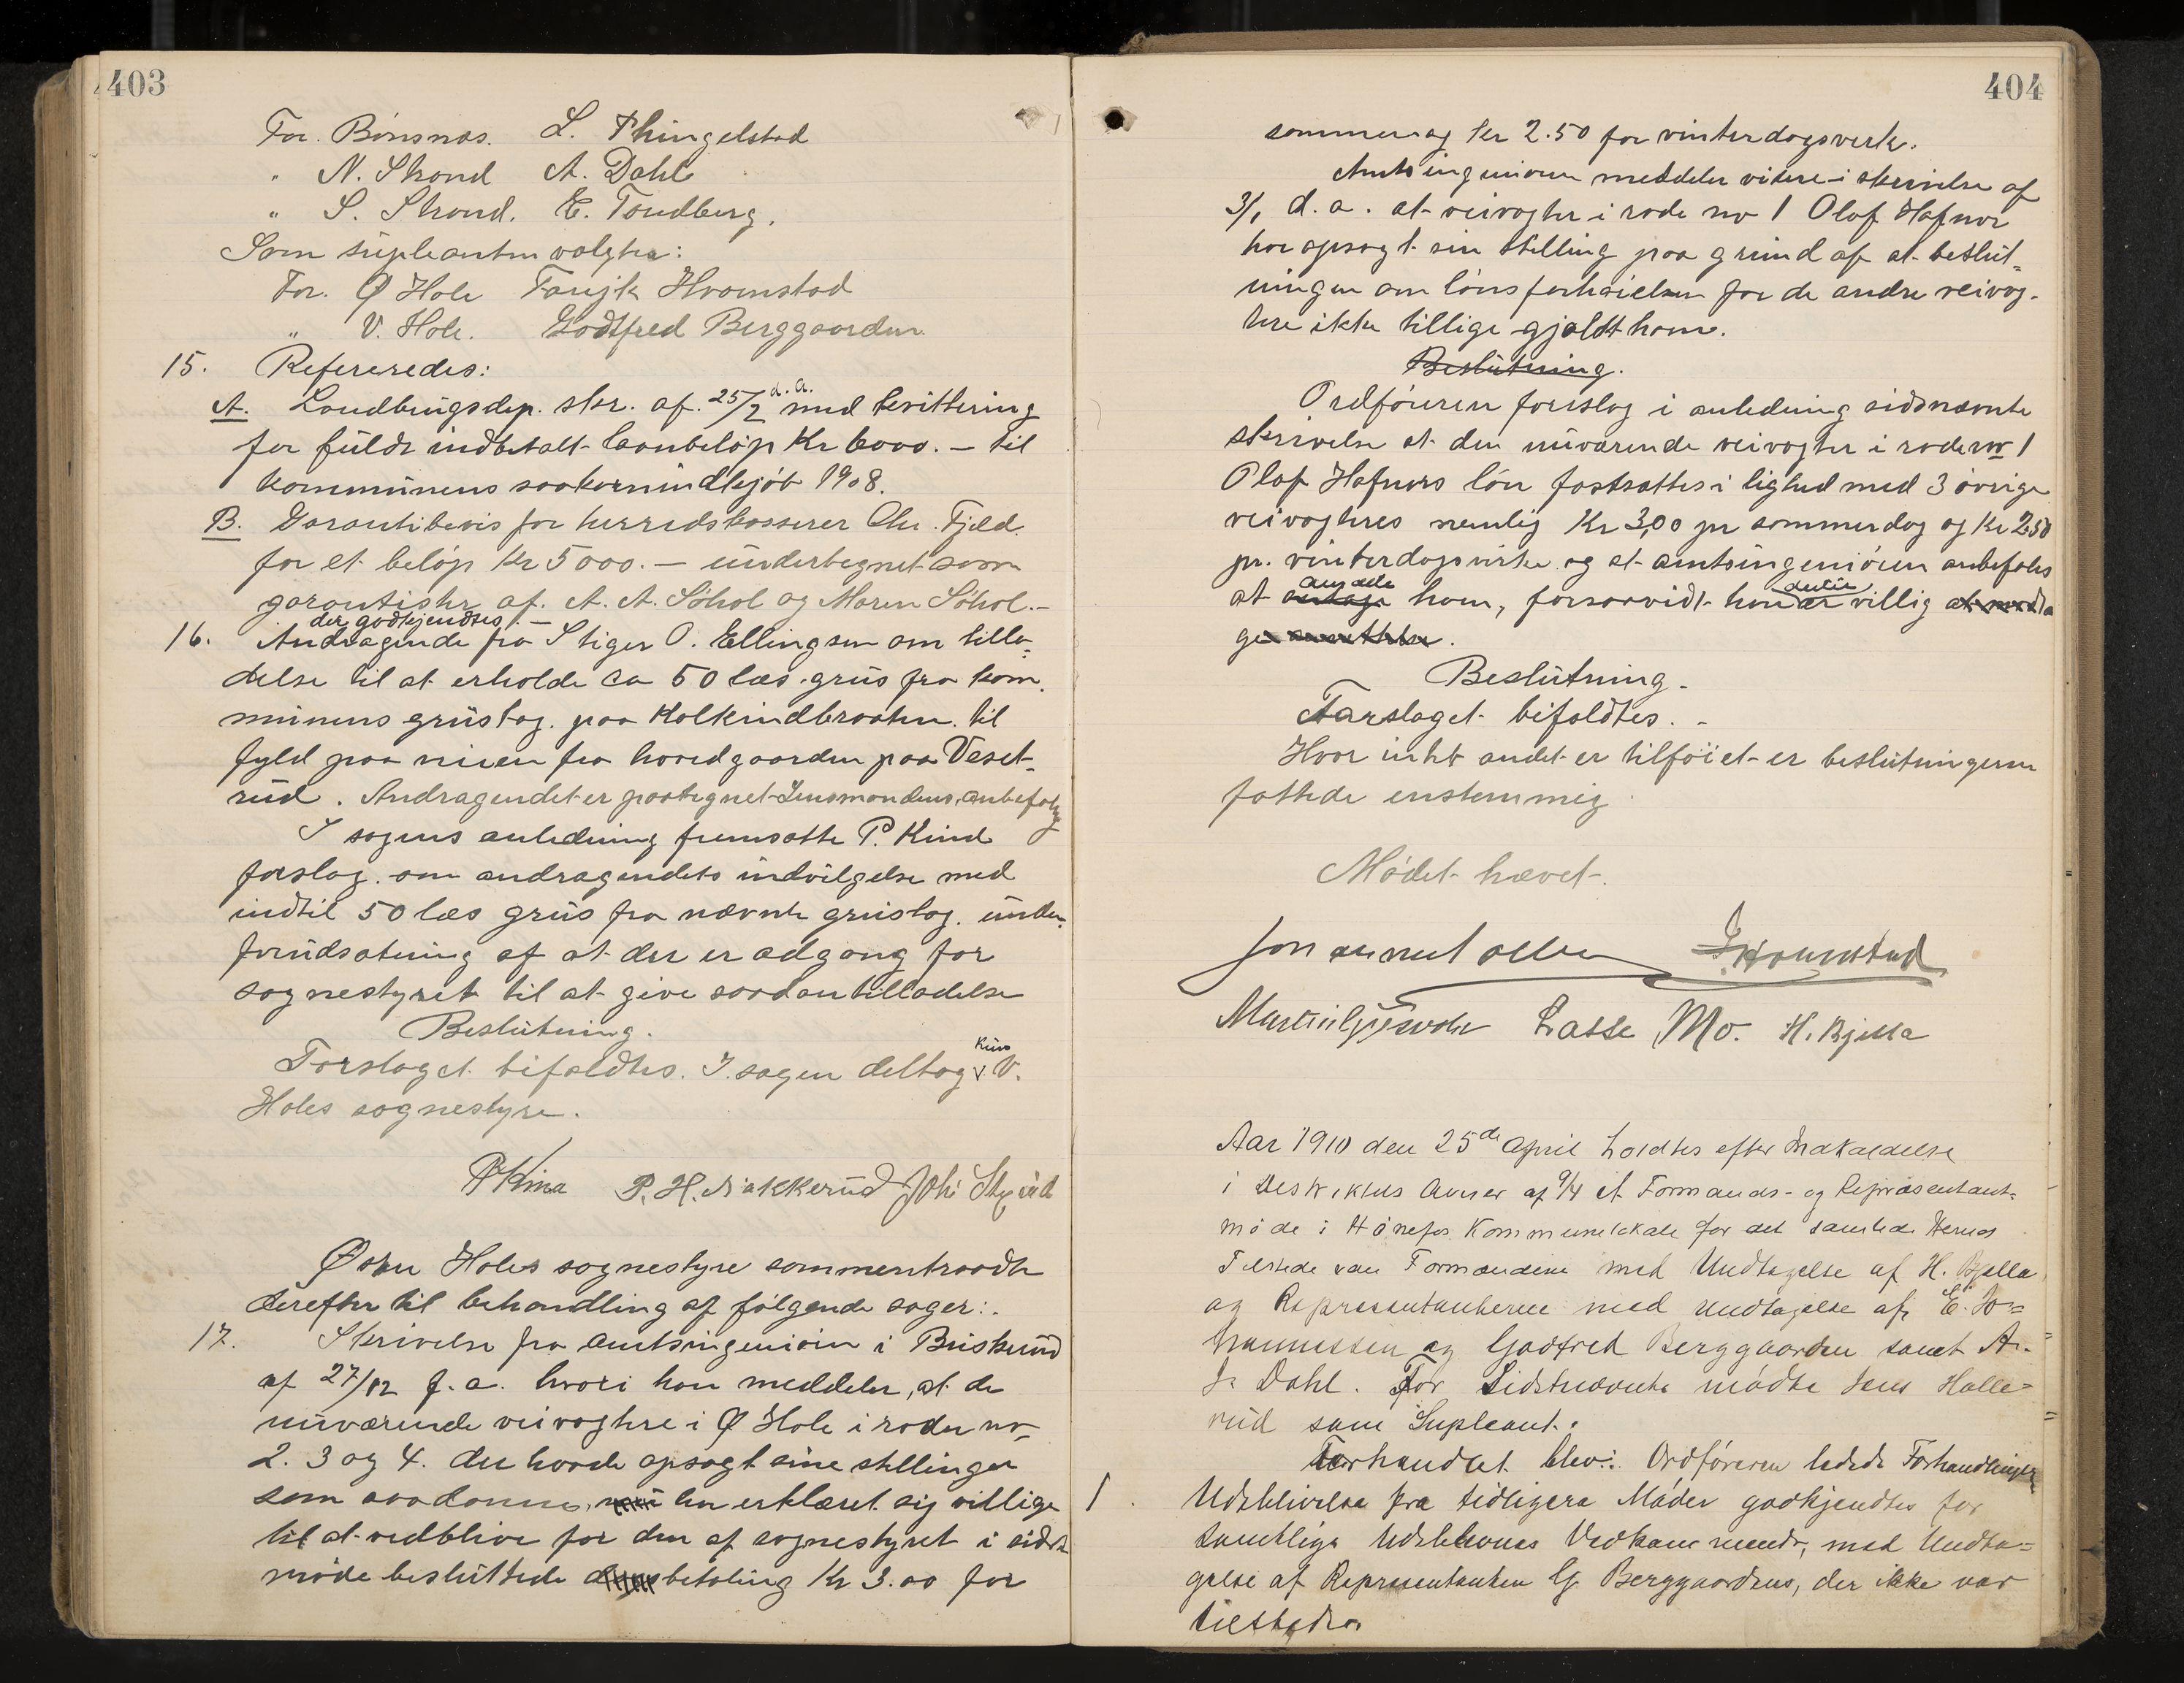 403
For. Bönsnæs. L. Thingelstad
" N. Strand A. Dahl
" S. Strand. E. Tandberg.
Som supleanter valgtes:
For. Ø Hole Hvamstad
" V. Hole. Godtfred Berggaarden
15. Refereredes:
A. Landbrugsdep. skr. af. 25/2 d.a. med kvittering
for fuldt indbetalt laanbeløp Kr 6000. — til
kommunens saakornindkjöb 1908.
B. Garantibevis for herredskasserer Chr. Fjeld.
for et beløp Kr 5000. — undertegnet som
garantister af. A. A. Söhol og Maren Söhol. —
der godkjendtes. —
16. Andragende fra Stiger O. Ellingsen om tilla-
delse til at erholde ca 50 læs grus fra kom.
munens grustag. paa Kolkindbraaten. til
fyld paa veien fra hovedgaarden paa Veset-
rud. Andragendet er paategnet Lensmandens anbefaling
I sagens anledning fremsatte P. Kind
forslag. om andragendets indvilgelse med
indtil 50 læs grus fra nævnte grustag. under
forudsætning af at der er adgang for
sognestyret til at give saadan tilladelse
Beslutning.
Forslaget bifaldtes. I sagen deltog kun V.
Holes sognestyre.
P Kind P. H. Nakkerud Joh. Stixrud
Østre Holes sognestyre sammentraadte
derefter til behandling af følgende sager:.
17. Skrivelse fra amtsingeniøren i Buskerud
af 27/12 f.a. hvori han meddeler, at de
nuværende veivogtere i Ø Hole i roder no
2. 3 og 4. der havde opsagt sine stillinger
som saadanne, har erklæret sig villige
til at vedblive for den af sognestyret i sidste
møde besluttede betaling Kr 3.00 for
404
sommer og kr 2.50 for vinterdagsverk.
Amtsingeniøren meddeler videre i skrivelse af
3/1 d.a. at veivogter i rode no 1 Olaf Hafnor
har opsagt sin stilling paa grund af at beslut-
ningen om lønsforhøielsen for de andre veivog-
tere ikke tillige gjaldt ham.
Beslutning.
Ordføreren foreslog i anledning sidsnævnte
skrivelse at den nuværende veivogter i rode no 1
Olaf Hafnors løn fastsættes i lighed med 3 øvrige
veivogteres nemlig Kr 3,00 pr sommerdag og Kr 2.50
pr. vinterdagsverk og at amtsingeniøren anbefales
at antage ansætte ham, forsaavidt han er dertil villig
Beslutning.
Forslaget bifaldtes. -
Hvor intet andet er tilføiet er beslutningerne
fattede enstemmig.
Mødet hævet.
Hvamstad
Martin Lasse Mo. H. Bjella
Aar 1910 den 25de April holdtes efter Indkaldelse
i Distriktets Aviser af 9/4 et Formands- og Repræsentant-
møde i Hønefos Kommunelokale for det samlede Herred
Tilstede var Formændene med Undtagelse af H. Bjella
og Repræsentanterne med undtagelse af E. Jo-
hannessen og Godtfred Berggaarden samt A.
J. Dahl. For Sidstnævnte mødte Jens Halle-
rud som Supleant.
Forhandlet blev:. Ordføreren ledede Forhandlingen
1. Udeblivelse fra tidligere Møder godkjendtes for
samtlige Udeblevnes Vedkommende, med Undta-
gelse af Repræsentanten G. Berggaardens, der ikke var
tilstede.